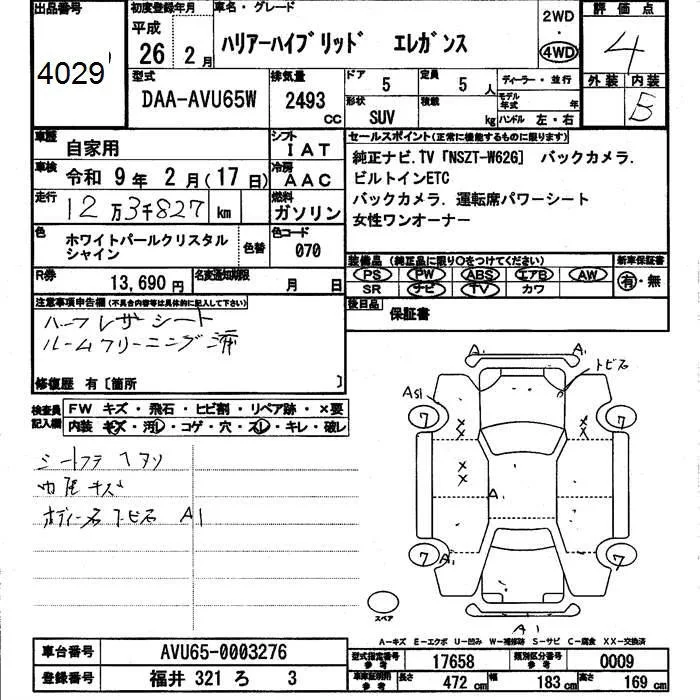 出品番号
4029
初度登録年月
平成
26 2月
車名・グレード
ハリアーハイブリッド エレガンス
2WD
・
4WD
評価点
4
外装 内装
B
型式
DAA-AVU65W
排気量
2493
CC
ドア
5
定員
5 人
形状
SUV
積載
kg
ディーラー・並行
モデル年式 年
ハンドル 左・右
車歴
自家用
シフト
IAT
車検
令和 9年 2月(17日)
冷房
AAC
走行
12万3千827 km
燃料
ガソリン
色
ホワイトパールクリスタル
シャイン
色替
色コード
070
R券
13,690円
名変通知期限
月 日
セールスポイント(正常に機能するものに限ります)
純正ナビ.TV「NSZT-W62G] バックカメラ.
ビルトインETC
バックカメラ. 運転席パワーシート
女性ワンオーナー
装備品 (純正品に限り○をつけてください)
新車保証書
PS PW ABS エアB AW
有・無
SR ナビ TV カワ
後日品
保証書
注意事項申告欄(不具合内容等は具体的に記入して下さい)
ハーフレザーシート
ルームクリーニング済
修復歴 有〔箇所 〕
検査員
記入欄
FW キズ・飛石・ヒビ割・リペア跡・×要
内装 キズ・汚レ・コゲ・穴・スレ・キレ・破レ
内尾キズ
A1
A1 A1
トビ石
AS1
7 7
×
×
×
×
A
7 7
A1
A1
スペア
A-キズ E-エクボ U-凹み W-補修跡 S-サビ C-腐食 XX-交換済
車台番号
AVU65-0003276
登録番号
福井 321 ろ 3
型式指定番号
参考
17658
類別区分番号
参考
0009
車車証明用
参考
長さ
472 cm
幅
183 cm
高さ
169 cm